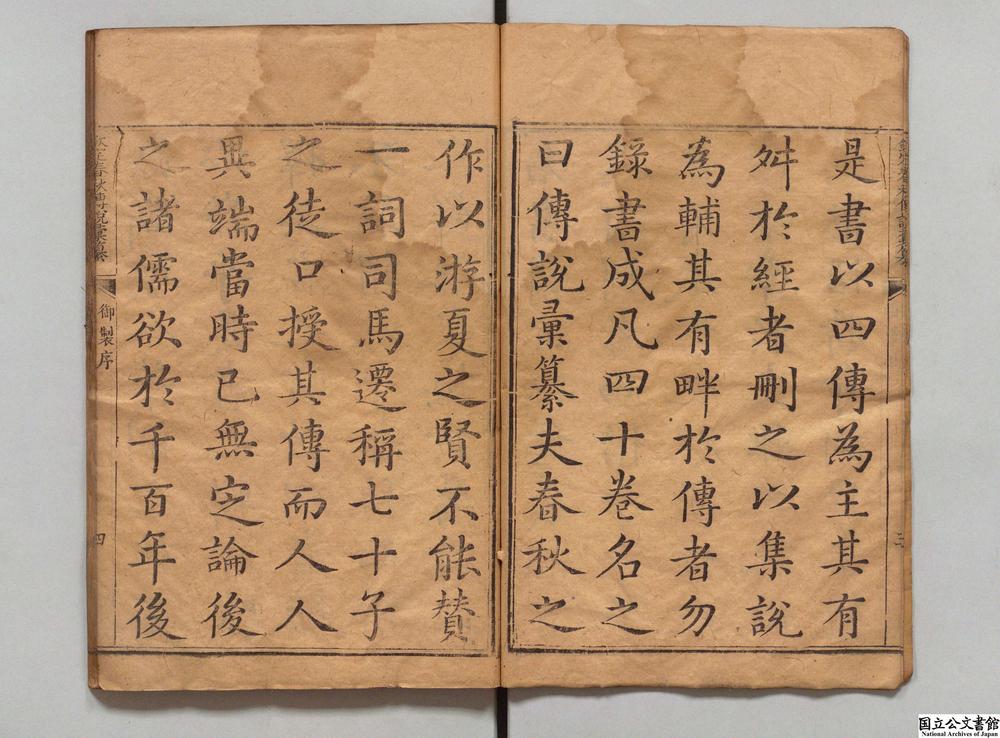 是書以四傳為主其有
舛於經者刪之以集說
為輔其有畔於傳者勿
錄書成凡四十卷名之
曰傳說彙纂夫春秋之
作以游夏之賢不能贊
一詞司馬遷稱七十子
之徒口授其傳而人人
異端當時已無定論後
之諸儒欲於千百年後
御製序
四
国立公文書館
National Archives of Japan